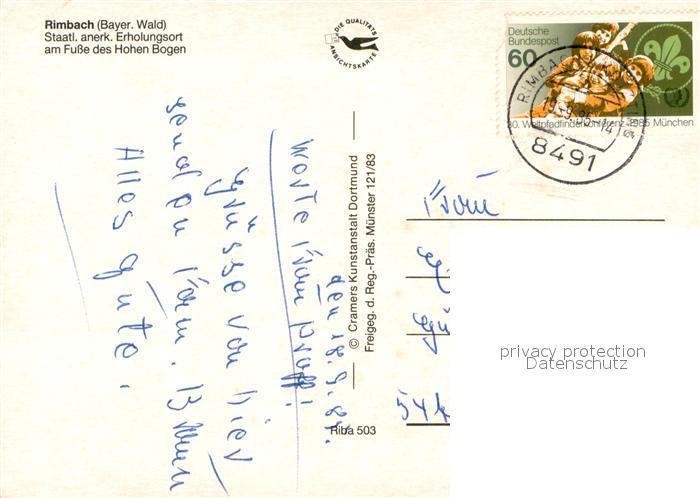 Rimbach (Bayer. Wald)
Staatl. anerk. Erholungsort
am Fuße des Hohen Bogen
DIE QUALITÄTS
ANSICHTSKARTE
Deutsche
Bundespost
60
30. Weltpfadfinderkonferenz 1985 München
RIMBACH
19.-9.85-14
8491
© Cramers Kunstanstalt Dortmund
Freigeg. d. Reg.-Präs. Münster 121/83
Riba 503
den 18.9.85.
Werte Frau
Grüsse von hier
senden Fam.
Alles Gute.
Frau
54
privacy protection
Datenschutz